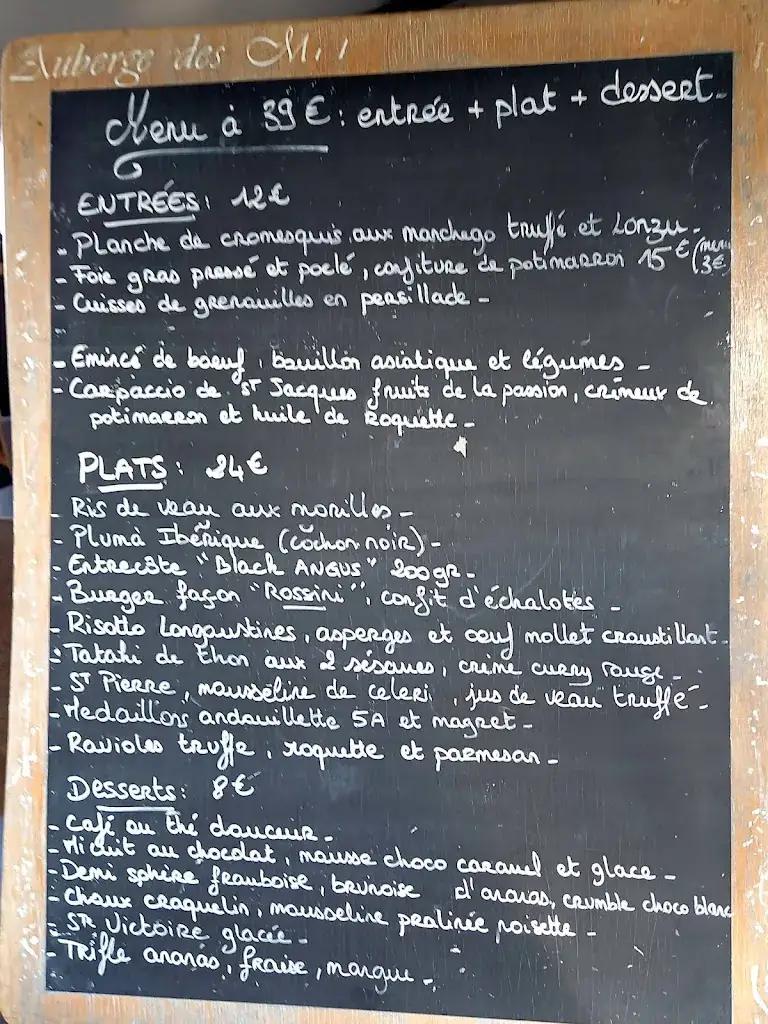 Auberge des M
Menu à 39 €: entrée + plat + dessert-
ENTRÉES: 12€
- Planche de cromesquis aux manchego truffé et Lonzu-
- Foie gras pressé et poelé, confiture de potimarron 15€ (menu
3€
- Cuisses de grenouilles en persillade -
-
- Emincé de boeuf, bouillon asiatique et légumes -
- Carpaccio de St Jacques fruits de la passion, crémeux de
potimarron et huile de Roquette-
PLATS: 24€
- Ris de veau aux morilles-
- Pluma Ibérique (cochon noir)-
- Entrecôte "Black ANGUS" 200gr-
- Burger façon "Rossini", confit d'échalotes -
- Risotto Langoustines, asperges et oeuf mollet croustillant-
- Tataki de thon aux 2 sésames, crème curry rouge-
- St Pierre, mousseline de celeri, jus de veau truffé-
- Medaillons andouillette 5A et magret-
- Ravioles truffe, roquette et parmesan-
Desserts: 8€
- Café ou thé douceur-
- Mi cuit au chocolat, mousse choco caramel et glace-
- Demi sphère framboise, brunoise d'ananas, crumble choco blanc
- Choux craquelin, mousseline pralinée noisette -
- St. Victoire glacée-
- Trifle ananas, fraise, mangue-